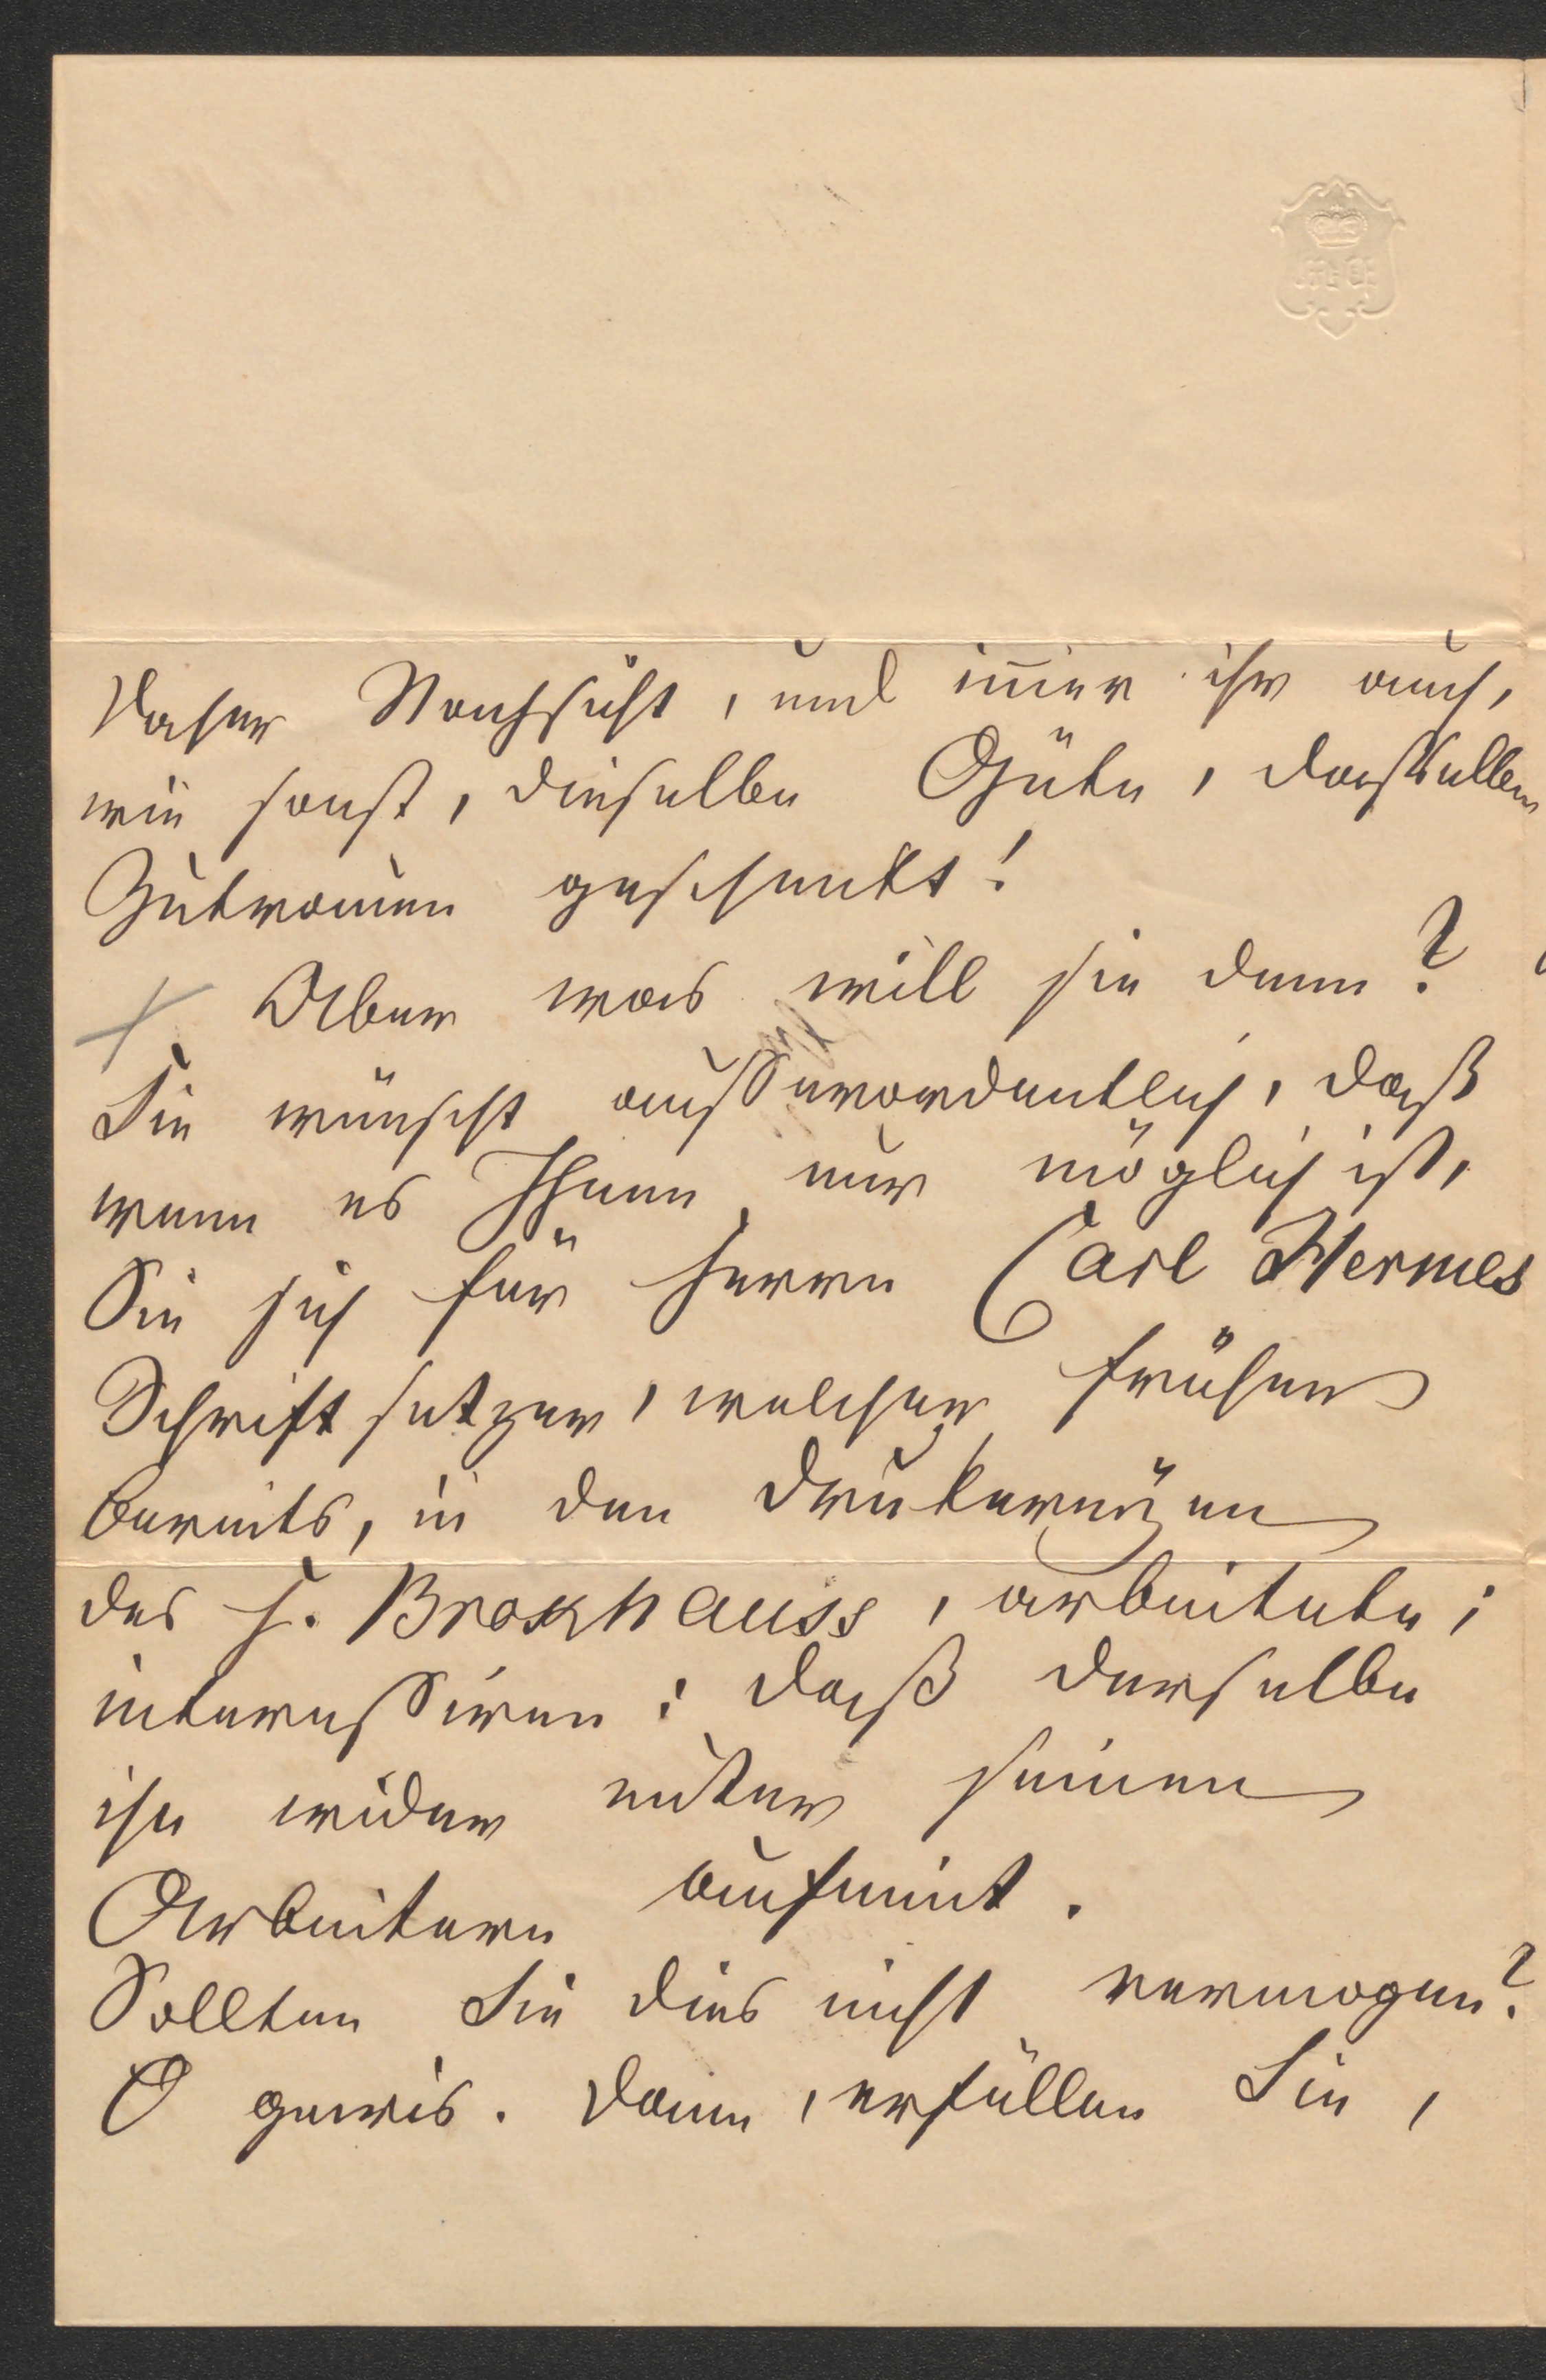 Daher Nachsicht, und im̄er ihr auch,
wie sonst, dieselbe Güte, dasselbe
Zutrauen geschenkt!
+ Aber was will sie denn?
Sie wünscht ausserordentlich, daß
wenn es Ihnen nur möglich ist,
Sie sich für Herrn Carl Hermes
Schriftsetzer, welcher früher
bereits, in den Drukereyen
des H. Brokhauss, arbeitete;
interessiren: daß derselbe
ihn wider unter seinen
Arbeitern aufnimt.
Sollten Sie dies nicht vermogen?
O gewis. Dann, erfüllen Sie,